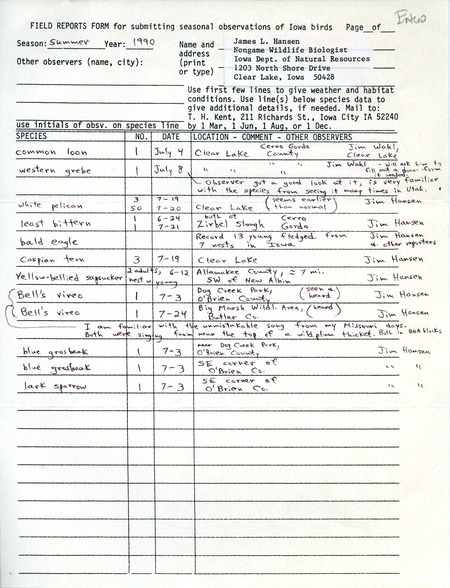 Enter
FIELD REPORTS FORM for submitting seasonal observations of Iowa birds Page__of__
Season: Summer Year: 1990
Name and address (print or type)
James L. Hansen
Nongame Wildlife Biologist
Iowa Dept. of Natural Resources
1203 North Shore Drive
Clear Lake, Iowa 50428
Other observers (name, city):
Use first few lines to give weather and habitat
conditions. Use line(s) below species data to
give additional details, if needed. Mail to:
T. H. Kent, 211 Richards St., Iowa City IA 52240
by 1 Mar, 1 Jun, 1 Aug, or 1 Dec.
use initials of obsv. on species line
SPECIES NO. DATE LOCATION - COMMENT - OTHER OBSERVERS
common loon 1 July 4 Clear Lake Cerro Gordo County Jim Wahl, Clear Lake
western grebe 1 July 8 " " " " Jim Wahl - will ask him to fill out a docu. form
Observer got a good look at it, is very familiar
with the species from seeing it many times in Utah.
white pelican 3 7-19
50 7-20 Clear Lake (seems earlier than normal) Jim Hansen
least bittern 1 6-24
1 7-21 both at Zirbel Slough Cerro Gordo Jim Hansen
bald eagle Record 13 young fledged from
7 nests in Iowa Jim Hansen & other reporters
Caspian tern 3 7-19 Clear Lake Jim Hansen
Yellow-bellied sapsucker 2 adults, nest w/ young 6-12 Allamakee County, ≅ 7 mi.
SW of New Albin Jim Hansen
Bell's vireo 1 7-3 Dog Creek Park, O'Brien County (seen & heard) Jim Hansen
Bell's vireo 1 7-24 Big Marsh Wildl. Area, Butler Co. (heard) Jim Hansen
I am familiar with the unmistakable song from my Missouri days.
Both were singing from near the top of a wild plum thicket. Both =
blue grosbeak 1 7-3 near Dog Creek Park, O'Brien County Jim Hansen
blue grosbeak 1 7-3 SE corner of O'Brien Co. " "
lark sparrow 1 7-3 SE corner of O'Brien Co. " "